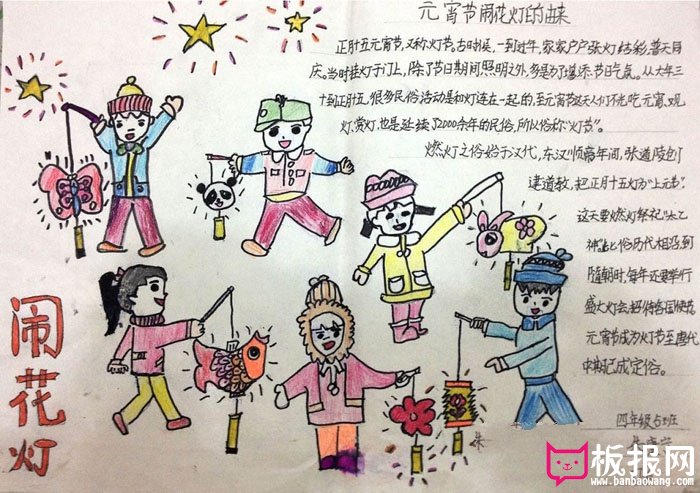 元宵节闹花灯的由来
正月十五元宵节，又称灯节，古时候，一到过年，家家户户张灯结彩，普天同
庆。当时挂灯于门上，除了节日期间照明之外，多是为了增添节日气氛。从大年三
十到正月十五，很多民俗活动是和灯连在一起的，至元宵节这天人们不光吃元宵，观
灯、赏灯，也是延续了2000余年的民俗，所以俗称"灯节"。
燃灯之俗始于汉代，东汉顺帝年间，张道陵创
建道教，把正月十五灯为"上元节"。
这天要燃灯祭祀
俗历代相沿，到
隋朝时，每年还要举行
盛大灯会，招待各国使节
元宵节成为灯节至唐代
中期已成定俗。
四年级
闹花灯
板报网
www.banbaowang.com